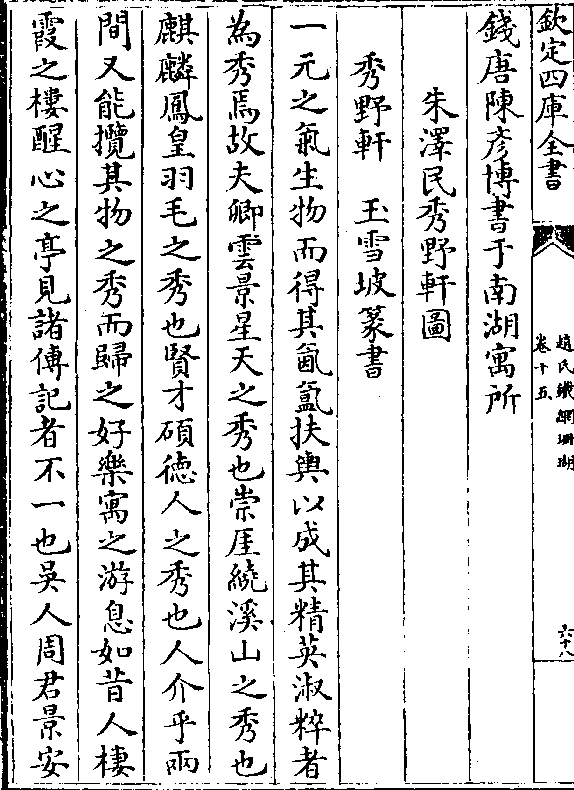 欽定四庫全書
趙氏鐵網珊瑚
卷十五
六十八
錢唐陳彥博書于南湖寓所
朱澤民秀野軒圖
秀野軒　玉雪坡篆書
一元之氣生物而得其氤氳扶輿以成其精英淑粹者
為秀焉故夫卿雲景星天之秀也崇厓繞溪山之秀也
麒麟鳳皇羽毛之秀也賢才碩德人之秀也人介乎兩
間又能攬其物之秀而歸之好樂寓之游息如昔人棲
霞之樓醒心之亭見諸傳記者不一也吳人周君景安